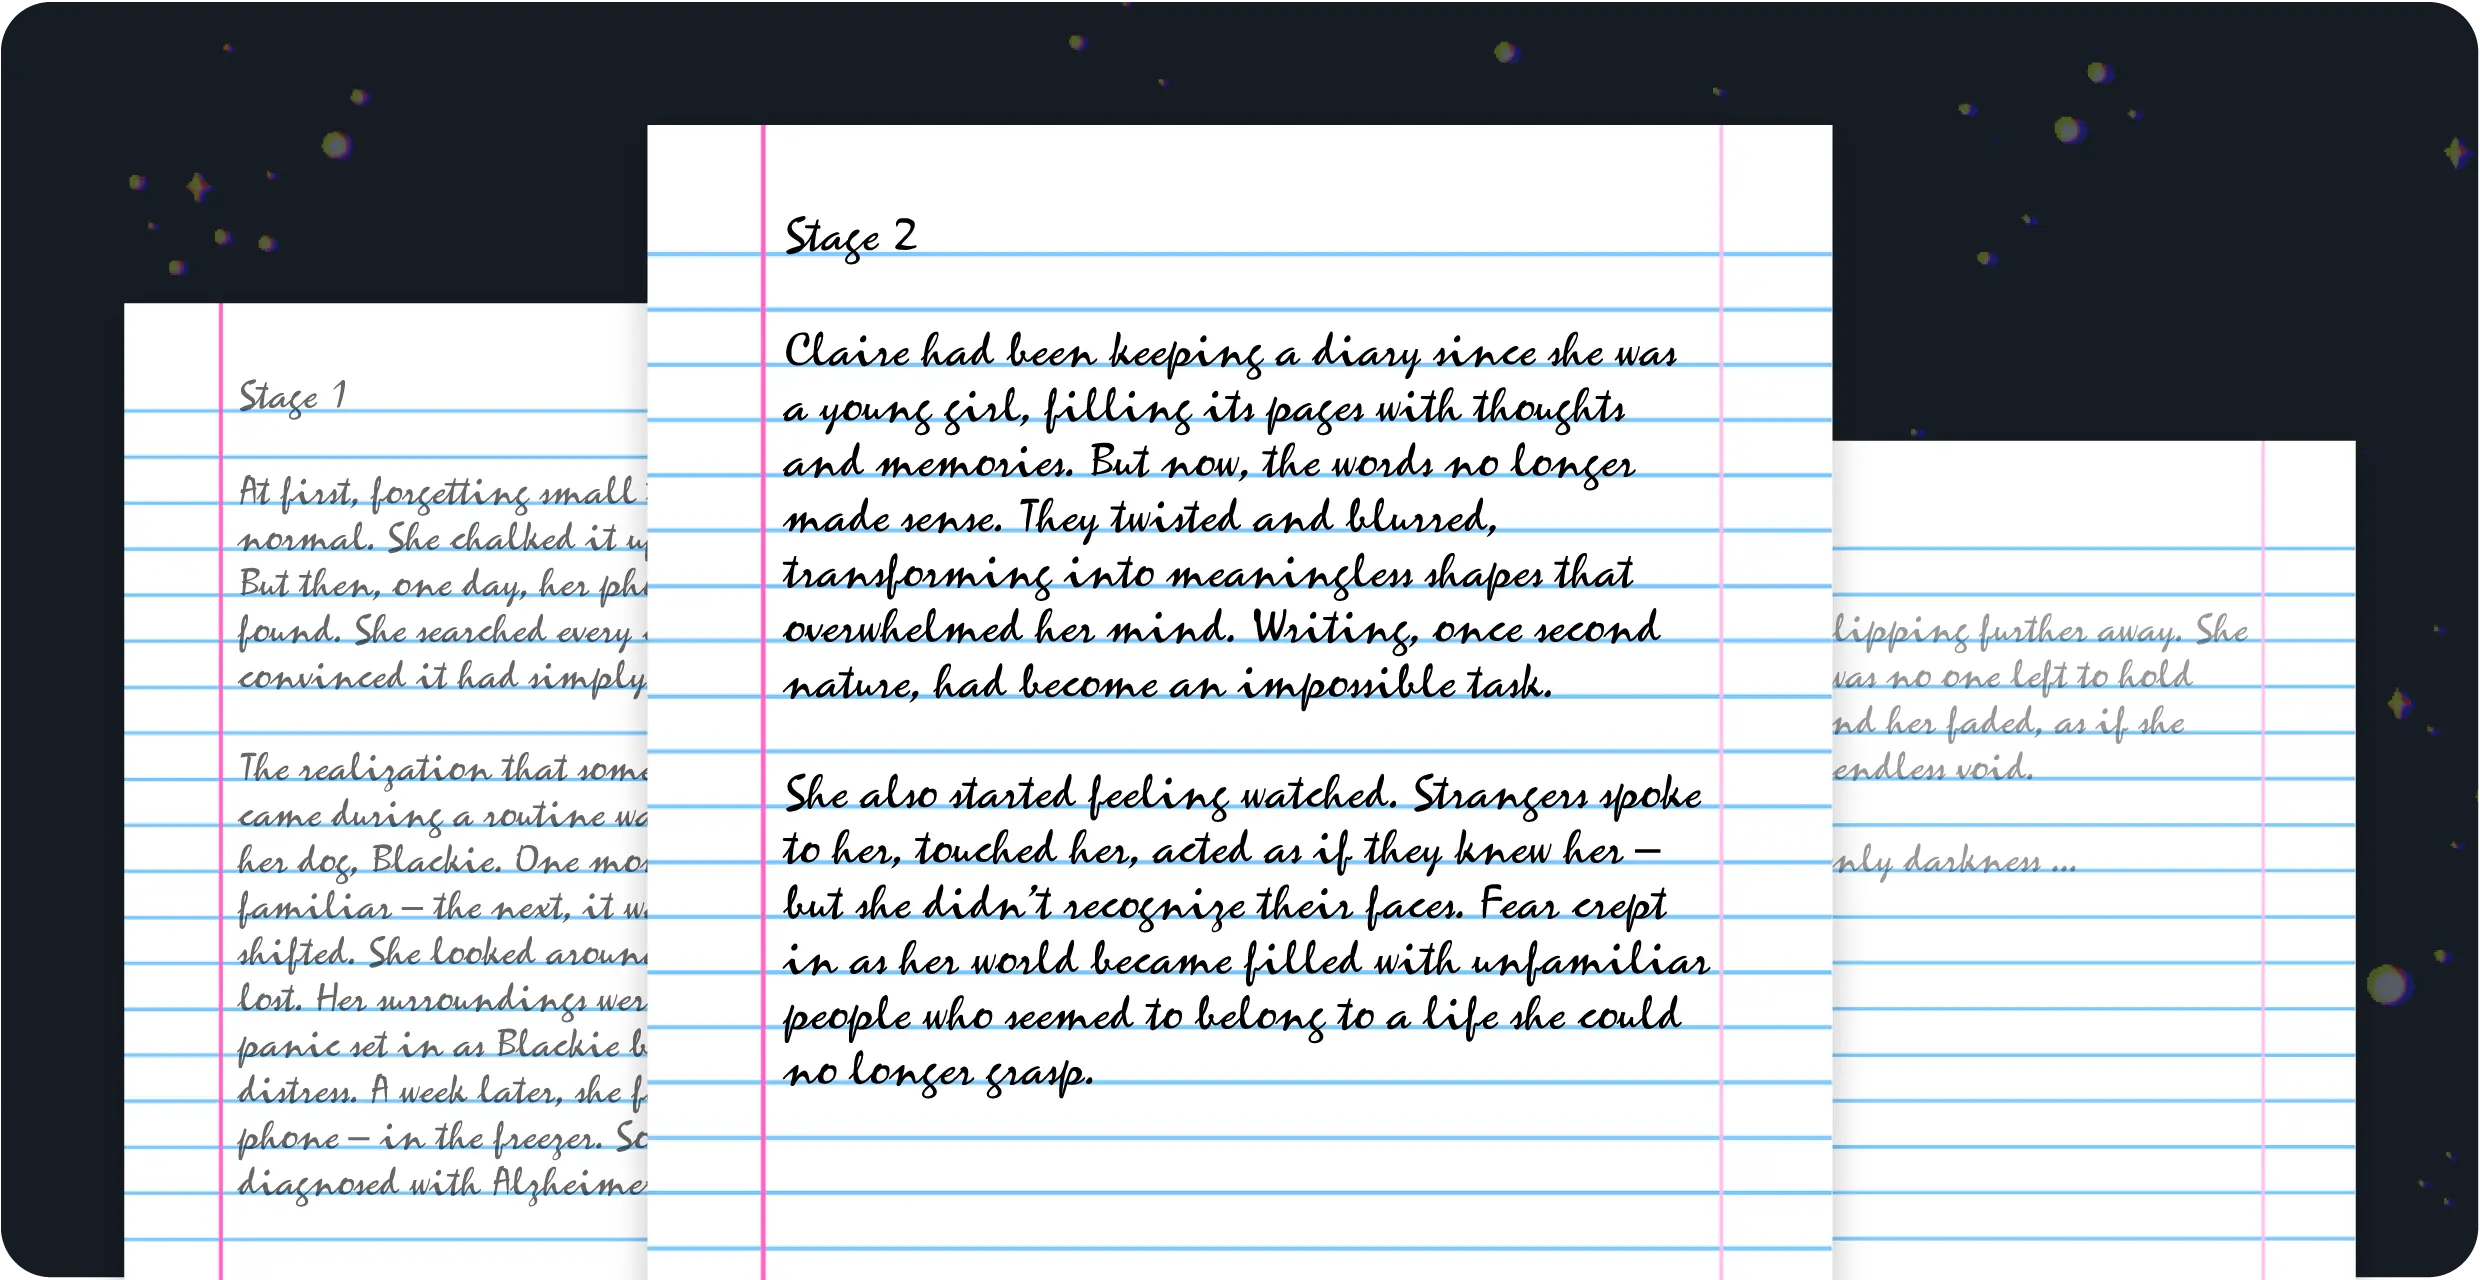 Stage 1
At first, forgetting small
normal. She chalked it
But then, one day, her
found. She searched every
convinced it had simply
The realization that
came during a routine
her dog, Blackie. One
familiar – the next, it
shifted. She looked
lost. Her surroundings
panic set in as Blackie
distress. A week later, she
phone – in the freezer.
diagnosed with
Stage 2
Claire had been keeping a diary since she was
a young girl, filling its pages with thoughts
and memories. But now, the words no longer
made sense. They twisted and blurred,
transforming into meaningless shapes that
overwhelmed her mind. Writing, once second
nature, had become an impossible task.
She also started feeling watched. Strangers spoke
to her, touched her, acted as if they knew her –
but she didn't recognize their faces. Fear crept
in as her world became filled with unfamiliar
people who seemed to belong to a life she could
no longer grasp.
further away. She
no one left to hold
her faded, as if she
endless void.
darkness ...